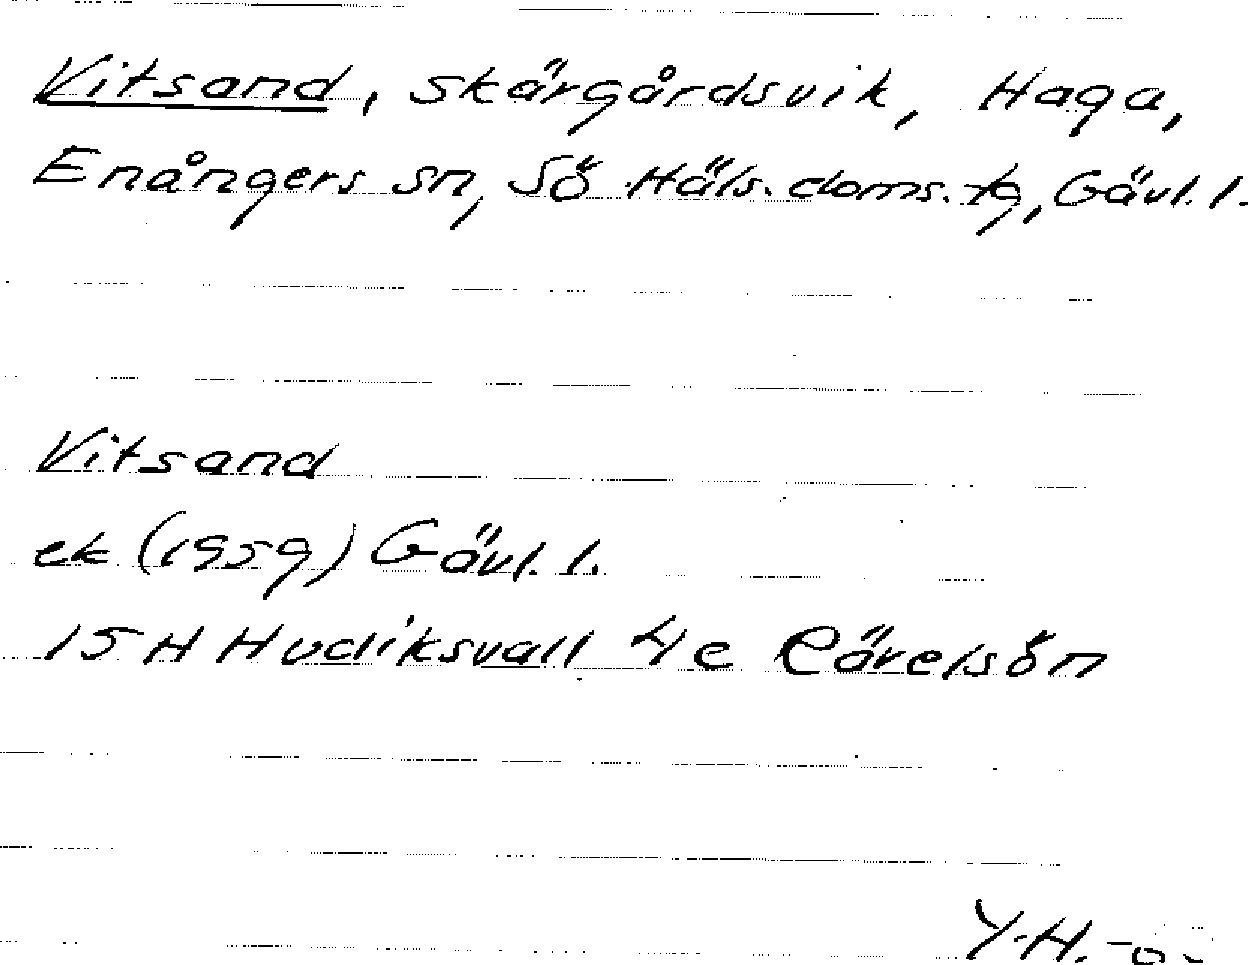 Vitsand, skärgårdsvik, Haga,
Enångers sn, Sö Häls. doms. tg, Gävl. l.
Vitsand
ek (1959) Gävl. l.
15 H Hudiksvall 4 e Rävelsön
Y.H.